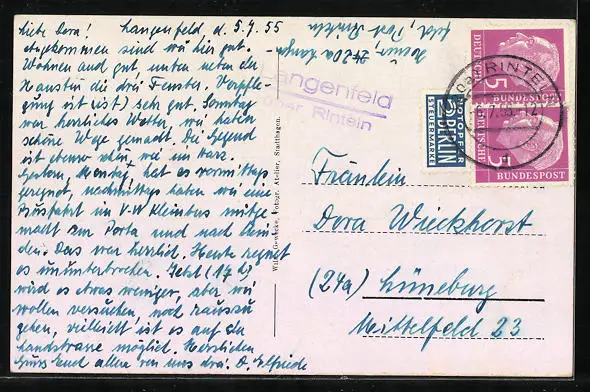 Liebe Dora! Langenfeld d. 5.7.55
Angekommen sind wir hier gut.
Wohnen auch gut, unten neben der
Haustür die drei Fenster. Verpfle-
gung ist (ist) sehr gut. Sonntag
war herrliches Wetter, wir haben
schöne Wege gemacht. Die Gegend
ist ebenso schön wie im Harz.
Gestern, Montag, hat es vormittags
geregnet, nachmittags haben wir eine
Busfahrt im V-W Kleinbus mitge-
macht zur Porta und nach Min-
den. Das war herrlich. Heute regnet
es ununterbrochen. Jetzt (17 h)
wird es etwas weniger, aber wir
wollen versuchen, noch rauszu-
gehen, vielleicht ist es auf der
Landstrasse möglich. Herzlichen
Gruss Euch allen von uns drei. D. Elfriede
feld, Post Rinteln
Langenfeld
über Rinteln
Wilh. Gewecke, Fotogr. Atelier, Stadthagen.
NOTOPFER
2 BERLIN
STEUERMARKE
DEUTSCHE
5
BUNDESPOST
DEUTSCHE
5
BUNDESPOST
RINTELN
Fräulein
Dora Wieckhorst
(24a) Lüneburg
Mittelfeld 23